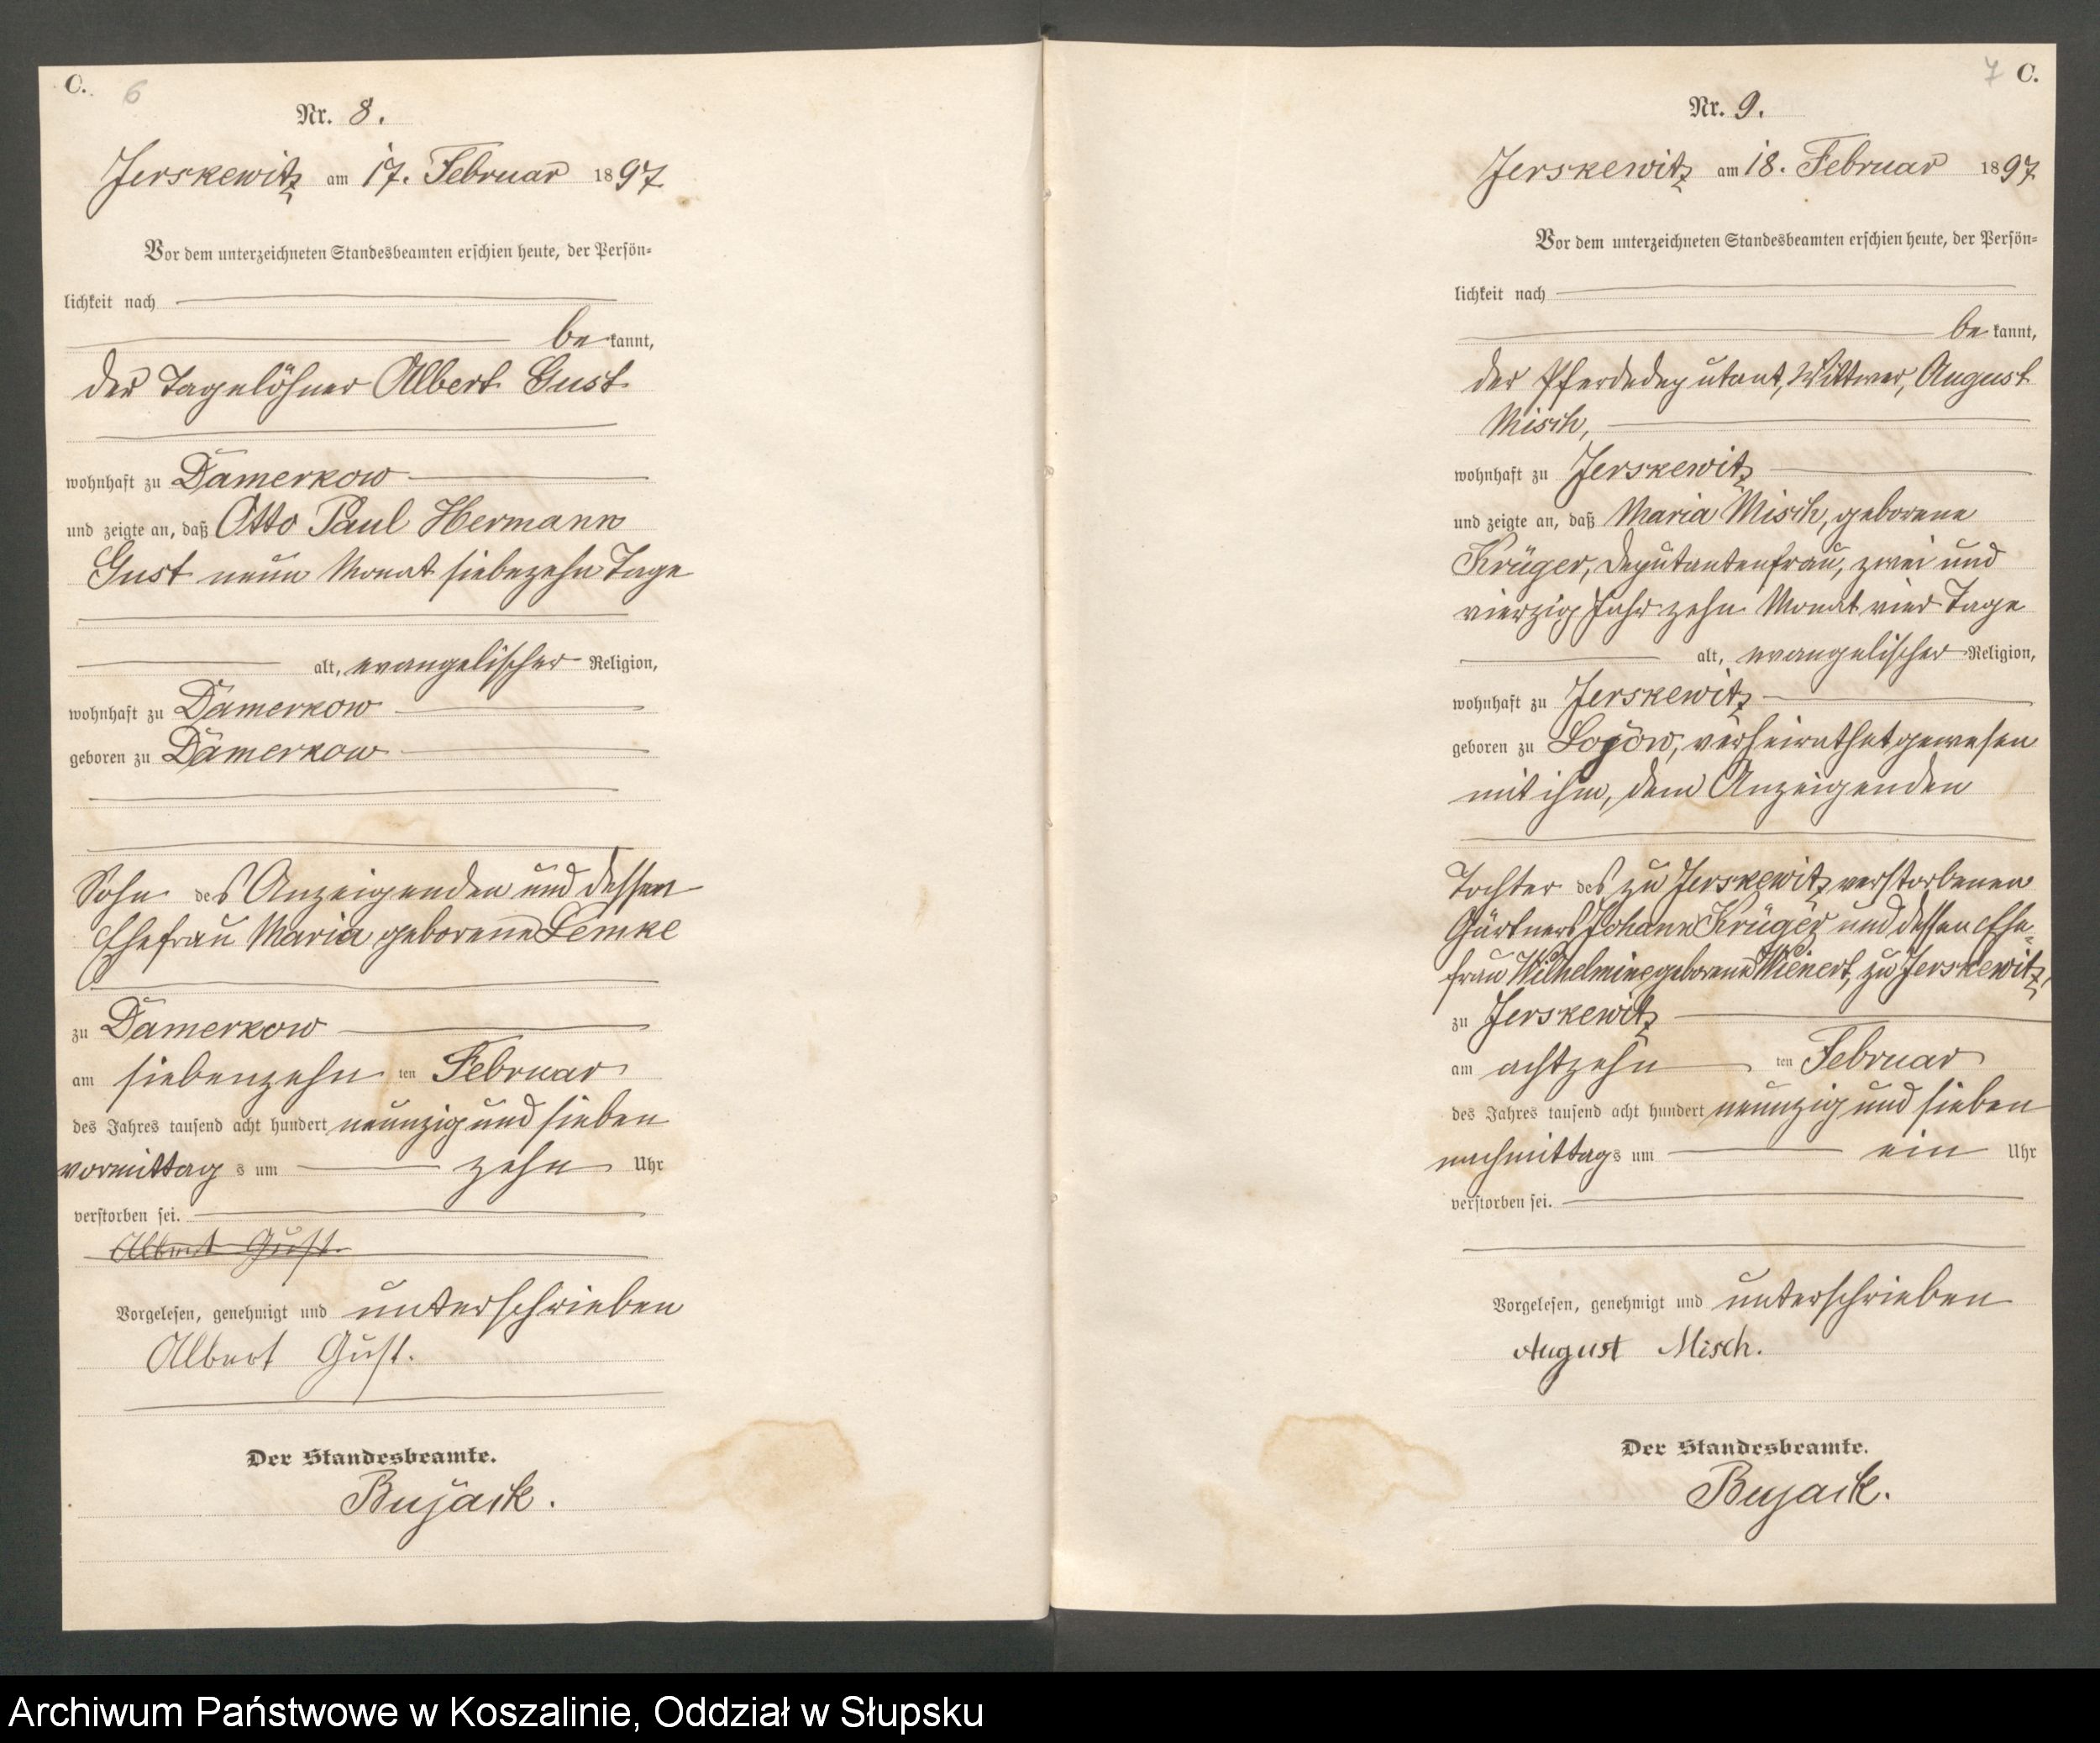 C. 6
Nr. 8.
Jerskewitz am 17. Februar 1897
Vor dem unterzeichneten Standesbeamten erschien heute, der Persön-
lichkeit nach
be kannt,
der Tagelöhner Albert Gust
wohnhaft zu Damerkow
und zeigte an, daß Otto Paul Hermann
Gust neun Monat siebezehn Tage
alt, evangelischer Religion,
wohnhaft zu Damerkow
geboren zu Damerkow
Sohn des Anzeigenden und dessen
Ehefrau Maria geborene Lemke
zu Damerkow
am siebenzehn ten Februar
des Jahres tausend acht hundert neunzig und sieben
vormittag s um zehn Uhr
verstorben sei.
Albert Gust.
Vorgelesen, genehmigt und unterschrieben
Albert Gust.
Der Standesbeamte.
Bujack.
7 C.
Nr. 9.
Jerskewitz am 18. Februar 1897
Vor dem unterzeichneten Standesbeamten erschien heute, der Persön-
lichkeit nach
be kannt,
der Pferdedeputant, Wittwer, August
Misch,
wohnhaft zu Jerskewitz
und zeigte an, daß Maria Misch, geborene
Krüger, Deputantenfrau, zwei und
vierzig Jahr zehn Monat vier Tage
alt, evangelischer Religion,
wohnhaft zu Jerskewitz
geboren zu verheirathet gewesen
mit ihm, dem Anzeigenden
Tochter des zu Jerskewitz verstorbenen
Gärtners Johann Krüger und dessen Ehe-
frau Wilhelmine geborene Wienert, zu Jerskewitz,
zu Jerskewitz
am achtzehn ten Februar
des Jahres tausend acht hundert neunzig und sieben
nachmittags um ein Uhr
verstorben sei.
Vorgelesen, genehmigt und unterschrieben
August Misch.
Der Standesbeamte.
Bujack.
Archiwum Państwowe w Koszalinie, Oddział w Słupsku